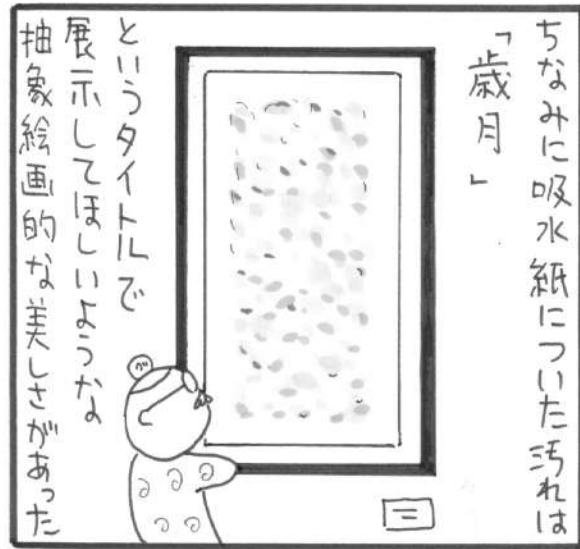 ちなみに吸水紙についた汚れは
「歳月」
というタイトルで
展示してほしいような
抽象絵画的な美しさがあった